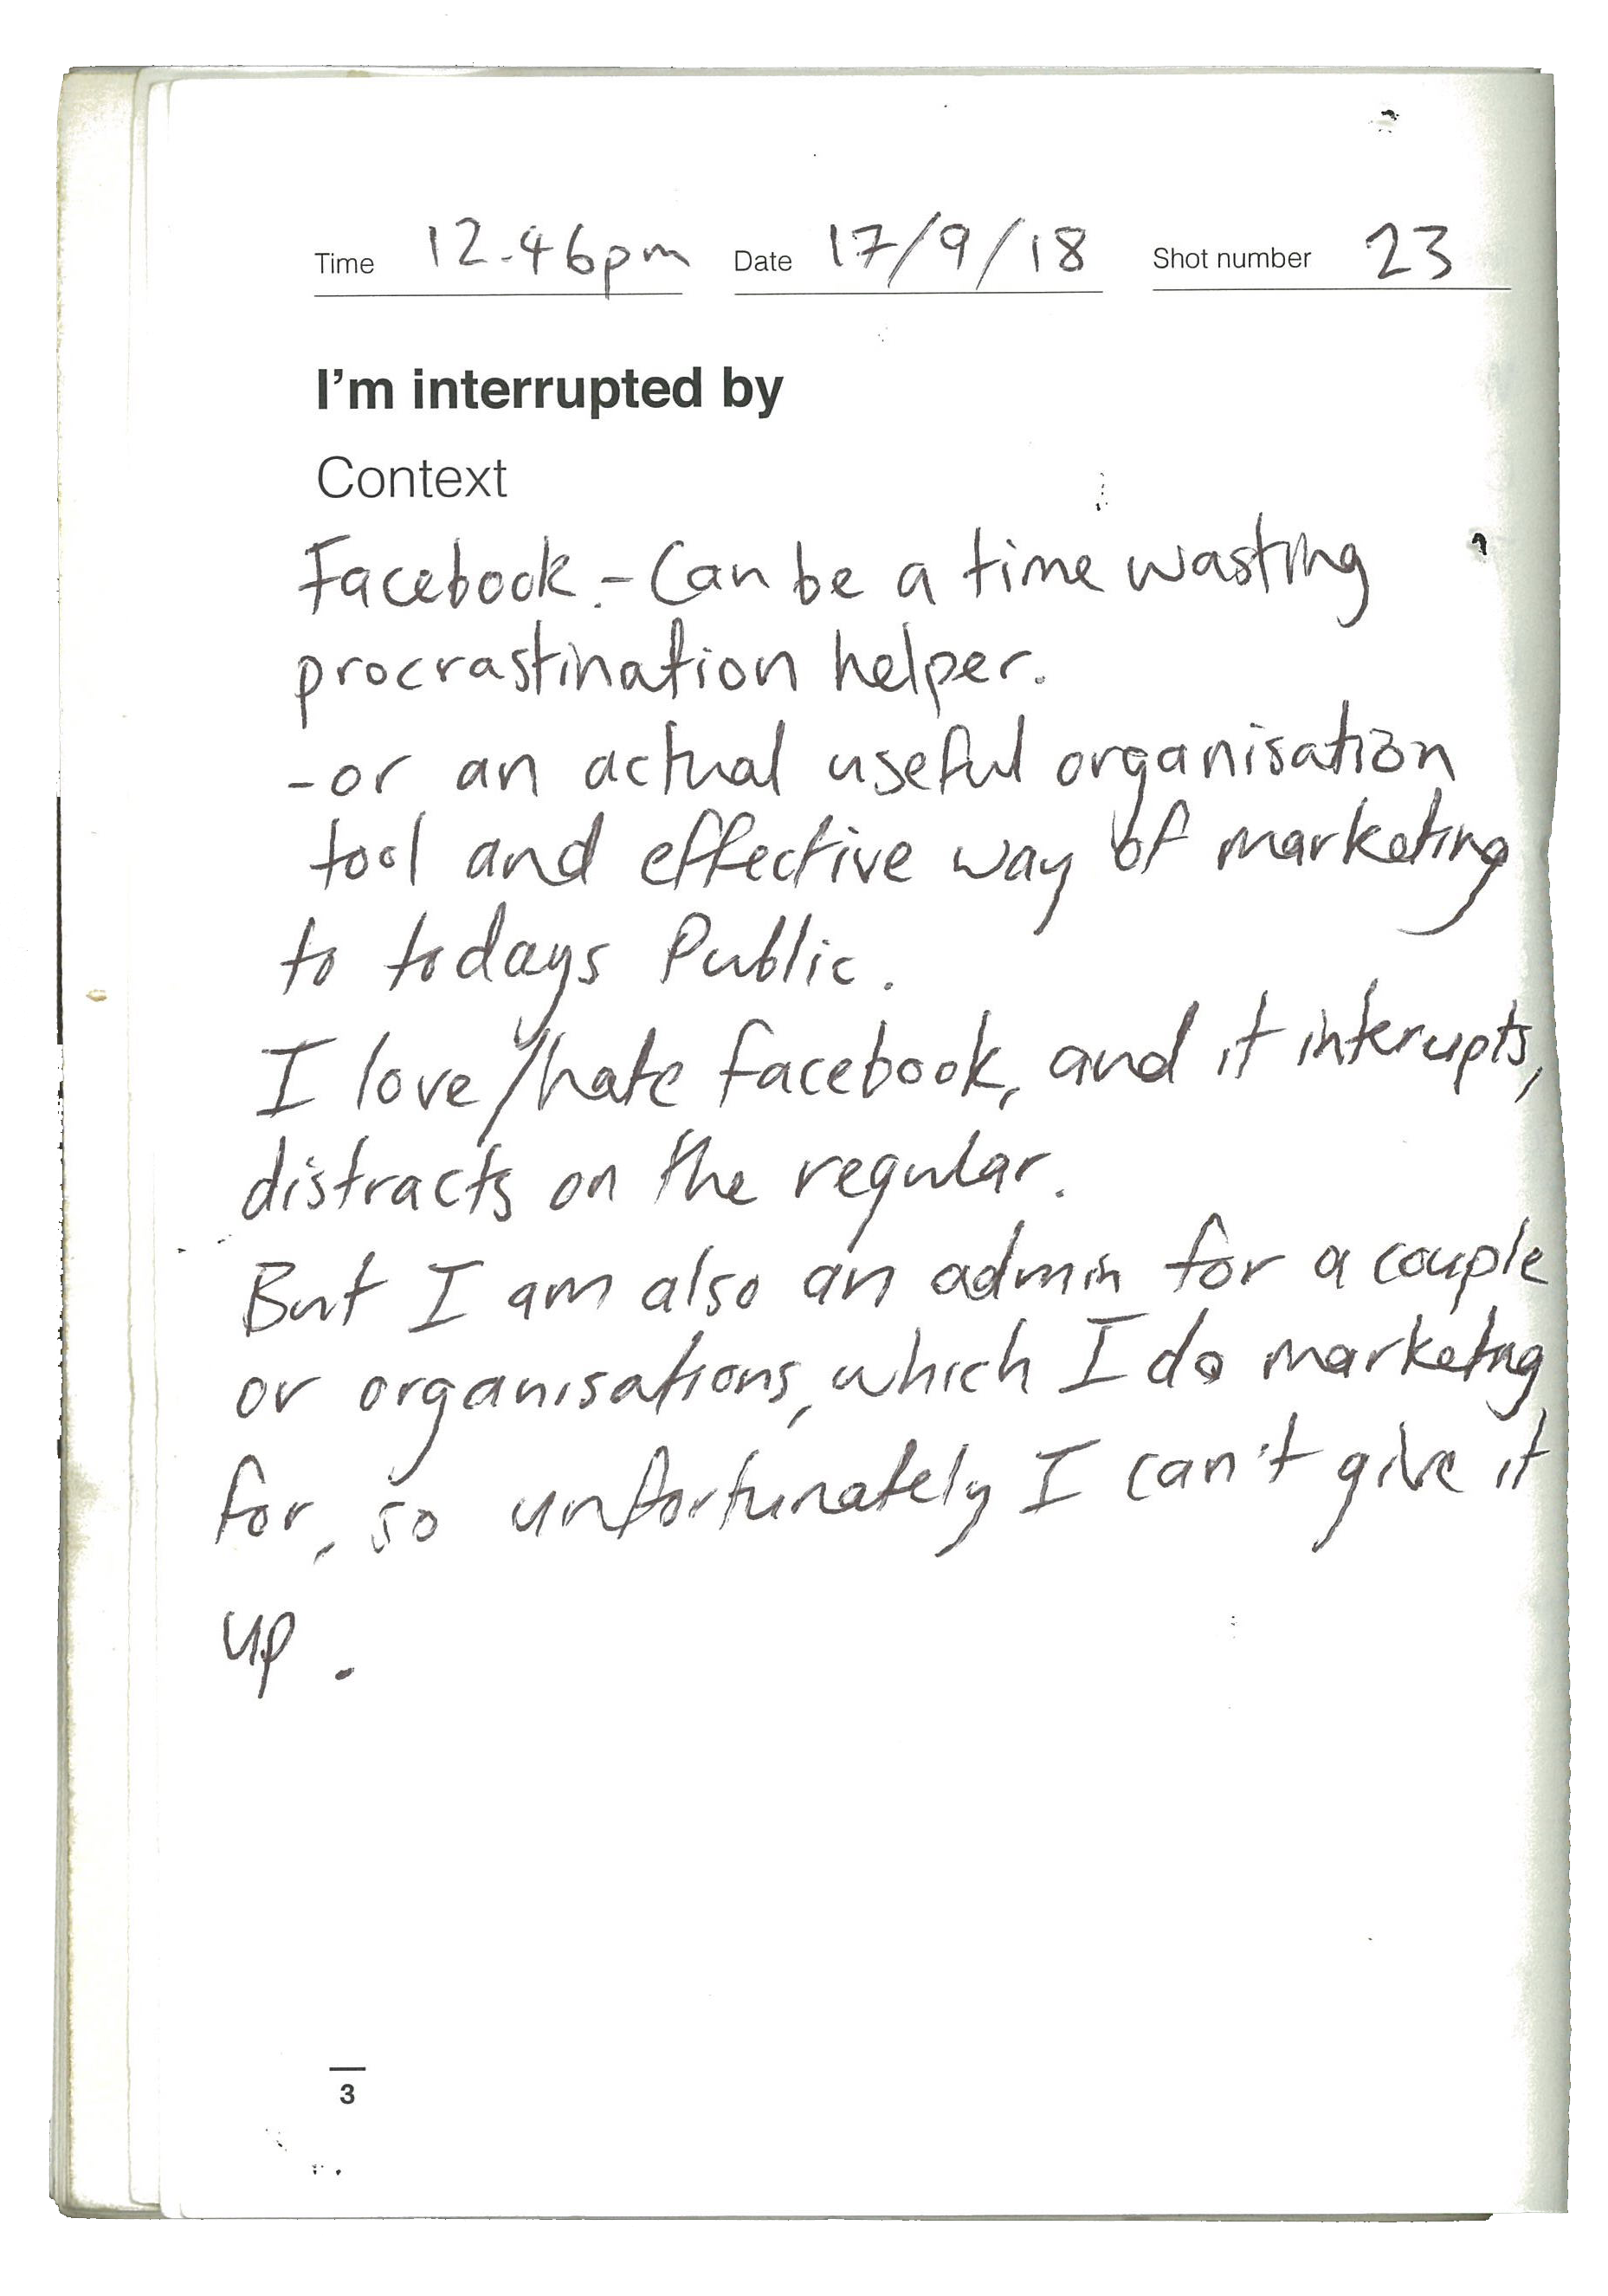 Time 12.46pm Date 17/9/18 Shot number 23
I'm interrupted by
Context
Facebook. - Can be a time wasting
procrastination helper.
- or an actual useful organisation
tool and effective way of marketing
to todays Public.
I love/hate facebook, and it interupts,
distracts on the regular.
But I am also an admin for a couple
or organisations, which I do marketing
for, so unfortunately I can't give it
up.
3